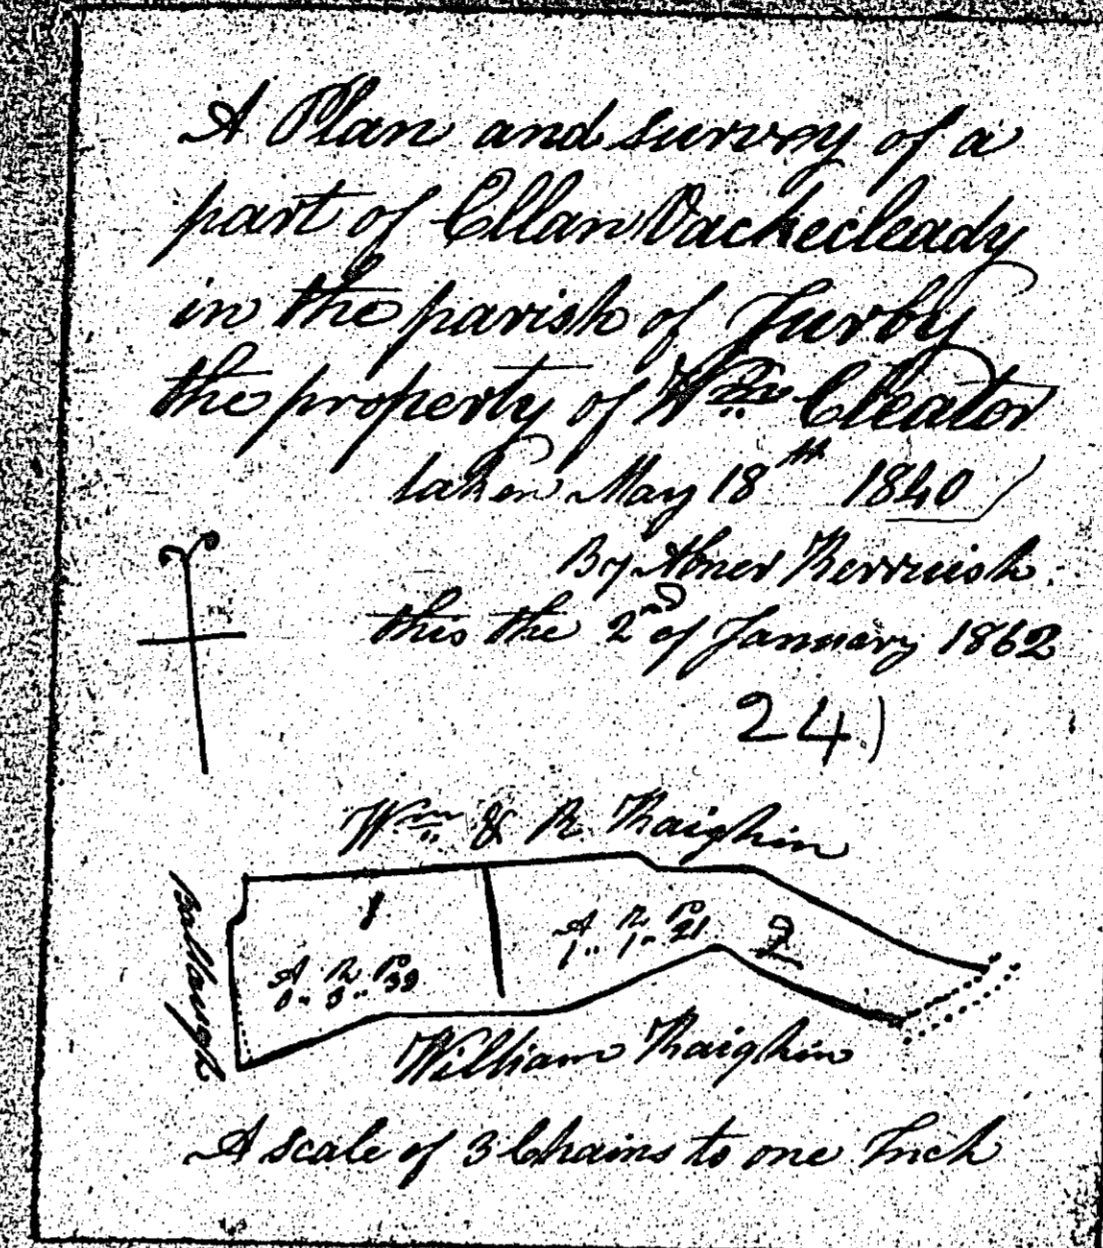 A Plan and survey of a
part of Ellan Vackecleady
in the parish of Jurby
the property of Wm Cleator
taken May 18th 1840
By Abner Kerruish
this the 2nd of January 1862
24)
Wm & R. Kaighin
Ballaugh
1
A R P
0" 3" 39
A R P
1" 1" 21
2
William Kaighin
A scale of 3 Chains to one Inch